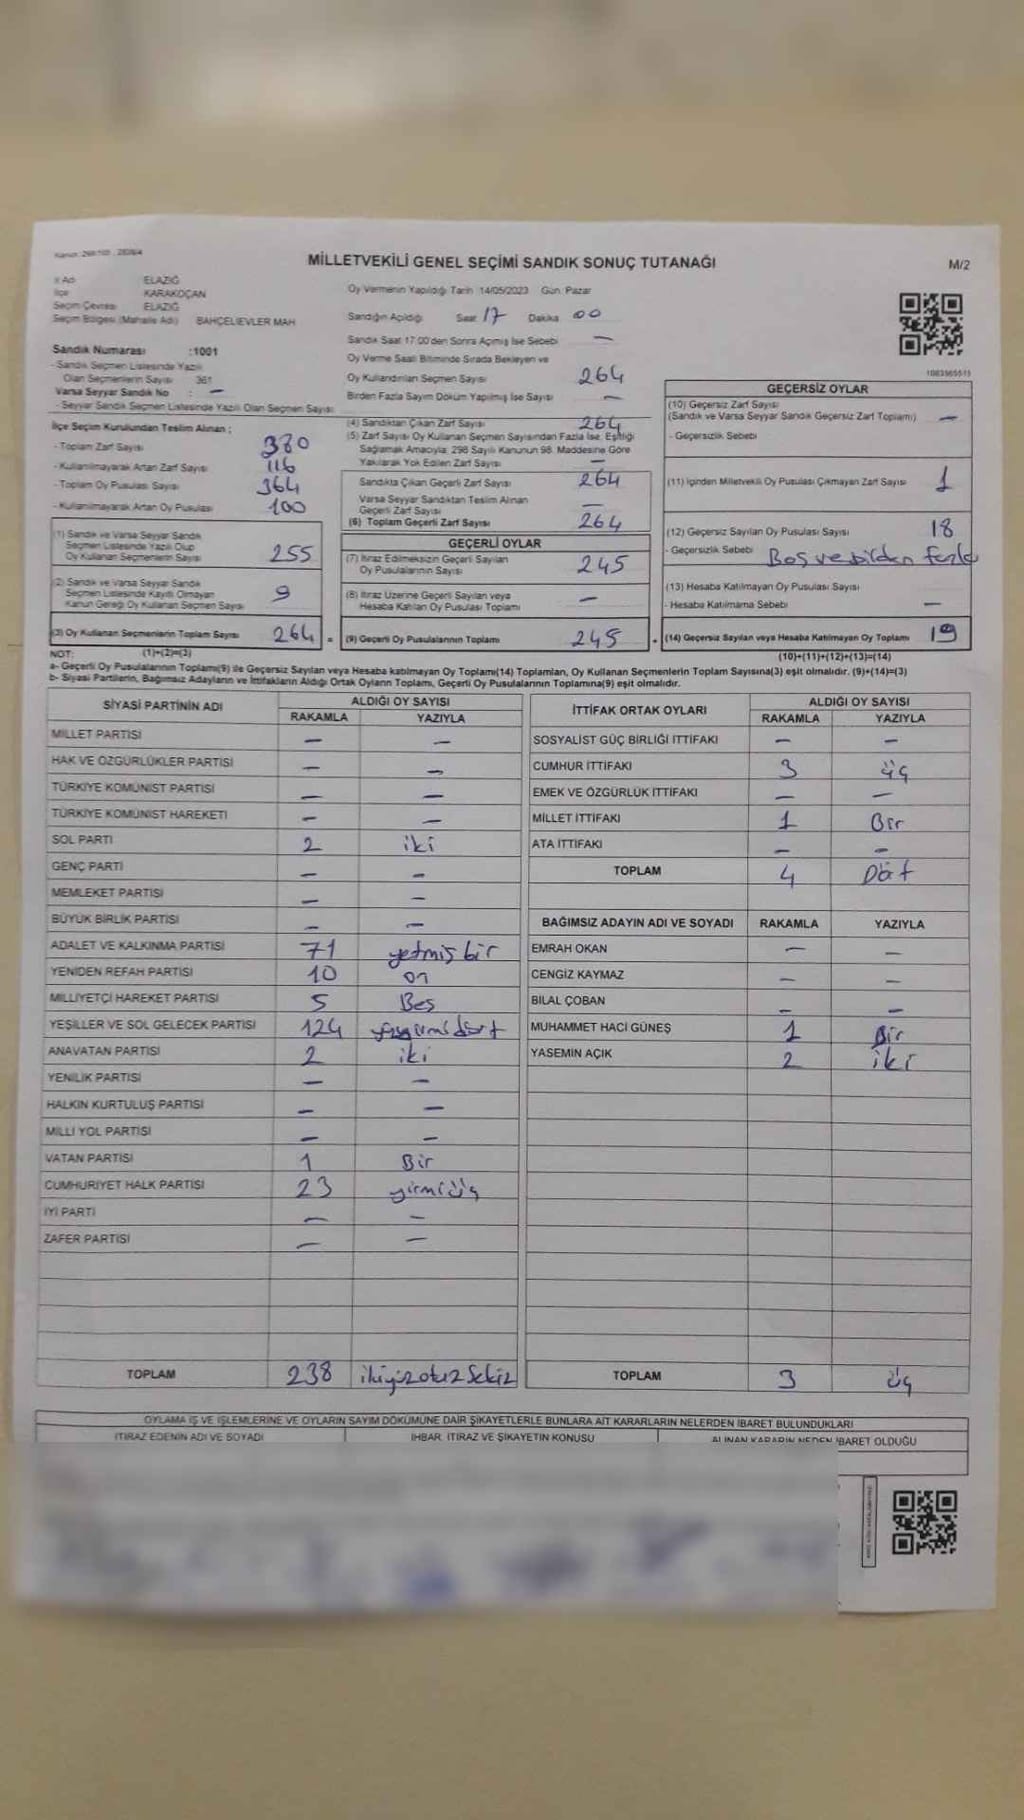 MİLLETVEKİLİ GENEL SEÇİMİ SANDIK SONUÇ TUTANAĞI
M/2
İl Adı ELAZIĞ
İlçe KARAKOÇAN
Seçim Çevresi ELAZIĞ
Seçim Bölgesi (Mahalle Adı) BAHÇELİEVLER MAH
Sandık Numarası :1001
- Sandık Seçmen Listesinde Yazılı
Olan Seçmenlerin Sayısı 361
Varsa Seyyar Sandık No : -
- Seyyar Sandık Seçmen Listesinde Yazılı Olan Seçmen Sayısı
Oy Vermenin Yapıldığı Tarih 14/05/2023 Gün: Pazar
Sandığın Açıldığı Saat 17 Dakika 00
Sandık Saat 17:00'den Sonra Açılmış İse Sebebi -
Oy Verme Saati Bitiminde Sırada Bekleyen ve
Oy Kullandırılan Seçmen Sayısı 264
Birden Fazla Sayım Döküm Yapılmış İse Sayısı -
1083565515
İlçe Seçim Kurulundan Teslim Alınan ;
- Toplam Zarf Sayısı 380
- Kullanılmayarak Artan Zarf Sayısı 116
- Toplam Oy Pusulası Sayısı 364
- Kullanılmayarak Artan Oy Pusulası 100
(1) Sandık ve Varsa Seyyar Sandık
Seçmen Listesinde Yazılı Olup
Oy Kullanan Seçmenlerin Sayısı 255
(2) Sandık ve Varsa Seyyar Sandık
Seçmen Listesinde Kayıtlı Olmayan
Kanun Gereği Oy Kullanan Seçmen Sayısı 9
(3) Oy Kullanan Seçmenlerin Toplam Sayısı 264 =
(4) Sandıktan Çıkan Zarf Sayısı 264
(5) Zarf Sayısı Oy Kullanan Seçmen Sayısından Fazla İse, Eşitliği
Sağlamak Amacıyla; 298 Sayılı Kanunun 98. Maddesine Göre
Yakılarak Yok Edilen Zarf Sayısı -
Sandıkta Çıkan Geçerli Zarf Sayısı 264
Varsa Seyyar Sandıktan Teslim Alınan
Geçerli Zarf Sayısı -
(6) Toplam Geçerli Zarf Sayısı 264
GEÇERLİ OYLAR
(7) İtiraz Edilmeksizin Geçerli Sayılan
Oy Pusulalarının Sayısı 245
(8) İtiraz Üzerine Geçerli Sayılan veya
Hesaba Katılan Oy Pusulası Toplamı -
(9) Geçerli Oy Pusulalarının Toplamı 245 +
GEÇERSİZ OYLAR
(10) Geçersiz Zarf Sayısı
(Sandık ve Varsa Seyyar Sandık Geçersiz Zarf Toplamı) -
- Geçersizlik Sebebi
(11) İçinden Milletvekili Oy Pusulası Çıkmayan Zarf Sayısı 1
(12) Geçersiz Sayılan Oy Pusulası Sayısı 18
- Geçersizlik Sebebi Boş ve birden fazla
(13) Hesaba Katılmayan Oy Pusulası Sayısı
- Hesaba Katılmama Sebebi -
(14) Geçersiz Sayılan veya Hesaba Katılmayan Oy Toplamı 19
NOT: (1)+(2)=(3)
(10)+(11)+(12)+(13)=(14)
a- Geçerli Oy Pusulalarının Toplamı(9) ile Geçersiz Sayılan veya Hesaba katılmayan Oy Toplamı(14) Toplamları, Oy Kullanan Seçmenlerin Toplam Sayısına(3) eşit olmalıdır. (9)+(14)=(3)
b- Siyasi Partilerin, Bağımsız Adayların ve İttifakların Aldığı Ortak Oyların Toplamı, Geçerli Oy Pusulalarının Toplamına(9) eşit olmalıdır.
SİYASİ PARTİNİN ADI ALDIĞI OY SAYISI
RAKAMLA YAZIYLA
MİLLET PARTİSİ - -
HAK VE ÖZGÜRLÜKLER PARTİSİ - -
TÜRKİYE KOMÜNİST PARTİSİ - -
TÜRKİYE KOMÜNİST HAREKETİ - -
SOL PARTİ 2 iki
GENÇ PARTİ - -
MEMLEKET PARTİSİ - -
BÜYÜK BİRLİK PARTİSİ - -
ADALET VE KALKINMA PARTİSİ 71 yetmiş bir
YENİDEN REFAH PARTİSİ 10 on
MİLLİYETÇİ HAREKET PARTİSİ 5 Beş
YEŞİLLER VE SOL GELECEK PARTİSİ 124
ANAVATAN PARTİSİ 2 iki
YENİLİK PARTİSİ - -
HALKIN KURTULUŞ PARTİSİ - -
MİLLİ YOL PARTİSİ - -
VATAN PARTİSİ 1 Bir
CUMHURİYET HALK PARTİSİ 23 yirmi üç
İYİ PARTİ - -
ZAFER PARTİSİ - -
TOPLAM 238 ikiyüzotuzsekiz
İTTİFAK ORTAK OYLARI ALDIĞI OY SAYISI
RAKAMLA YAZIYLA
SOSYALİST GÜÇ BİRLİĞİ İTTİFAKI - -
CUMHUR İTTİFAKI 3 üç
EMEK VE ÖZGÜRLÜK İTTİFAKI - -
MİLLET İTTİFAKI 1 Bir
ATA İTTİFAKI - -
TOPLAM 4 Dört
BAĞIMSIZ ADAYIN ADI VE SOYADI RAKAMLA YAZIYLA
EMRAH OKAN - -
CENGİZ KAYMAZ - -
BİLAL ÇOBAN - -
MUHAMMET HACİ GÜNEŞ 1 Bir
YASEMİN AÇIK 2 iki
TOPLAM 3 üç
OYLAMA İŞ VE İŞLEMLERİNE VE OYLARIN SAYIM DÖKÜMÜNE DAİR ŞİKAYETLERLE BUNLARA AİT KARARLARIN NELERDEN İBARET BULUNDUKLARI
İTİRAZ EDENİN ADI VE SOYADI İHBAR, İTİRAZ VE ŞİKAYETİN KONUSU ALINAN KARARIN NEDEN İBARET OLDUĞU